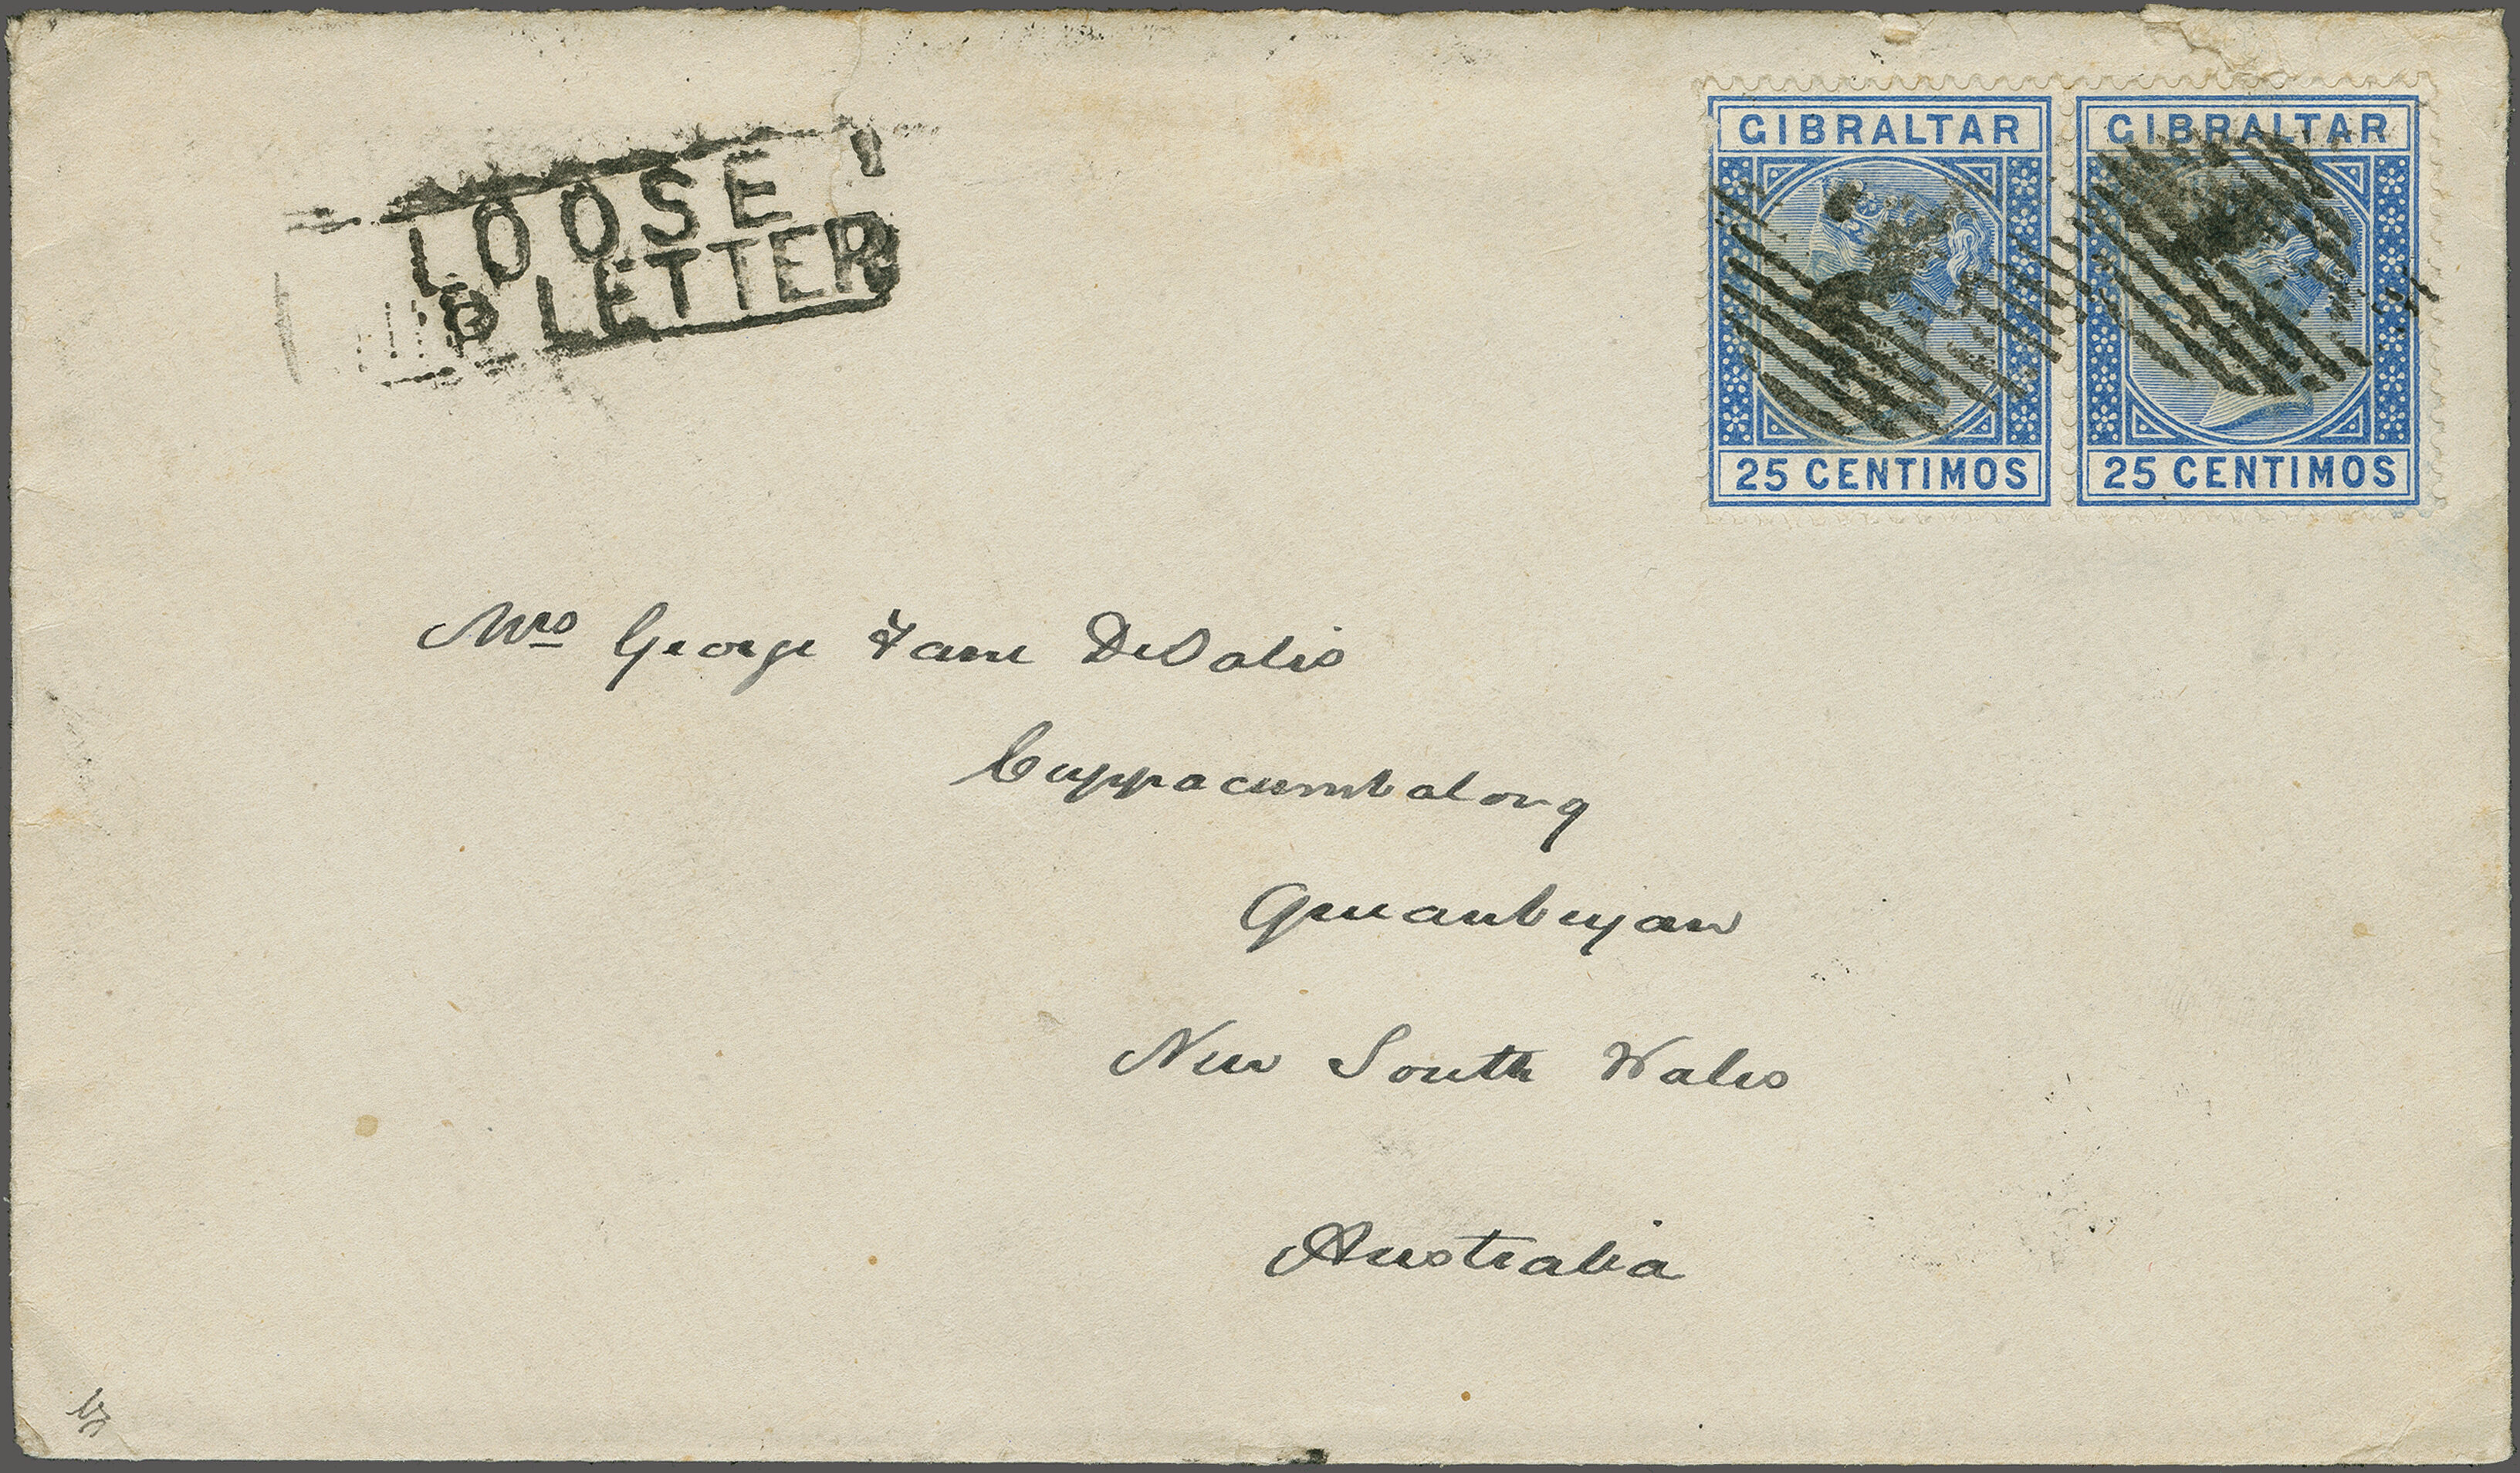 LOOSE
P LETTER
GIBRALTAR GIBRALTAR
25 CENTIMOS 25 CENTIMOS
Mrs George Fane DeSalis
Cuppacumbalong
Queanbeyan
New South Wales
Australia